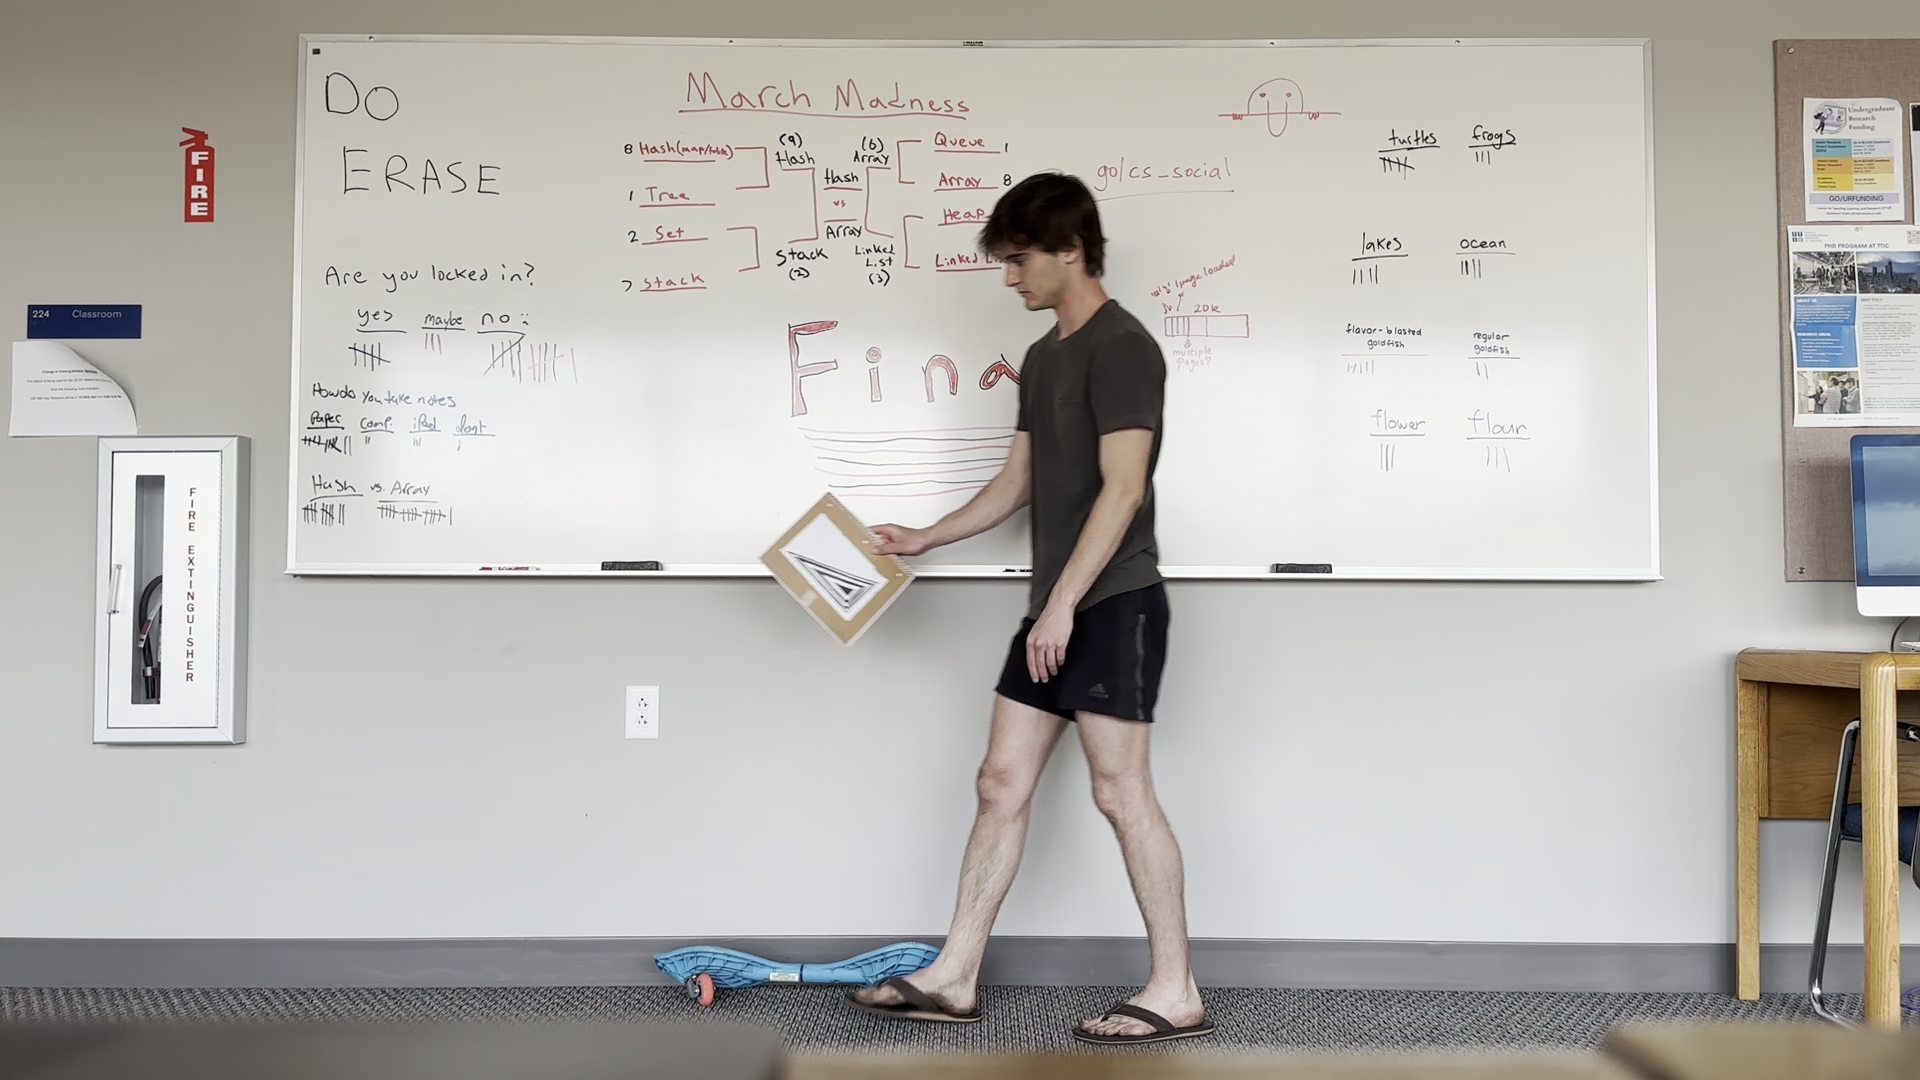 DO
ERASE
Are you locked in?
yes maybe no :
How do you take notes
Paper comp. iPad dont
Hash vs. Array
March Madness
8 Hash(map/table)
1 Tree
2 Set
7 Stack
(9)
Hash
Stack
(2)
Hash
vs
Array
(6)
Array
Linked
List
(3)
Queue 1
Array 8
Heap
Linked
Fina
go/cs_social
20k
multiple
pages?
turtles frogs
lakes ocean
flavor-blasted
goldfish
regular
goldfish
flower flour
FIRE
224 Classroom
FIRE EXTINGUISHER
Undergraduate
Research
Funding
GO/URFUNDING
PHD PROGRAM AT TTIC